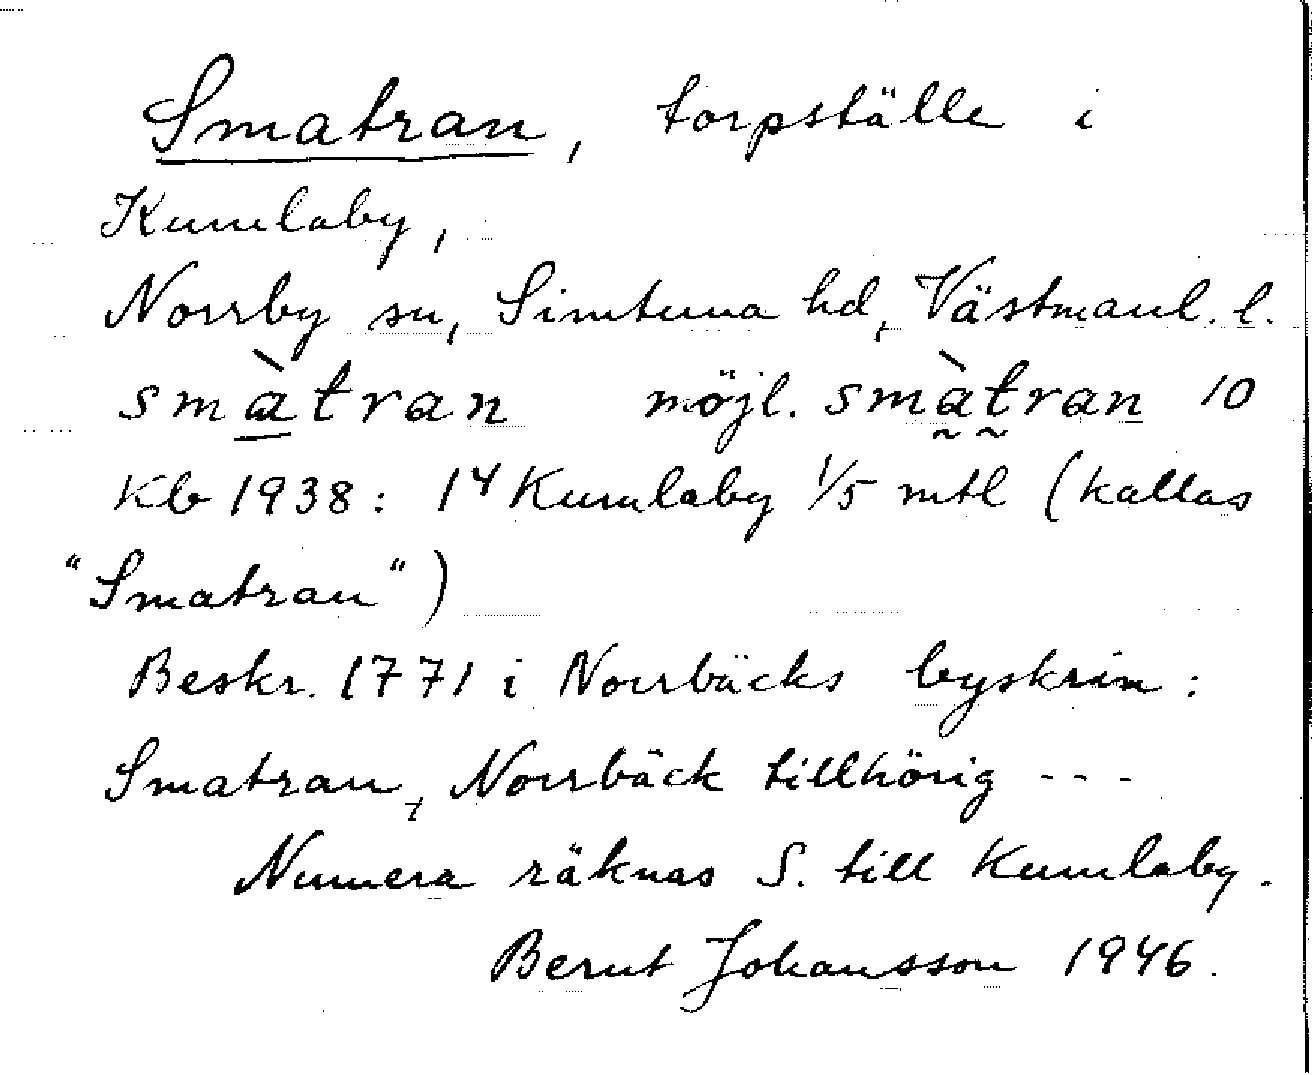 Smatran, torpställe i
Kumlaby,
Norrby sn, Simtuna hd, Västmanl. l.
smàtran möjl. smàtran 10
Kb 1938: 14 Kumlaby 1/5 mtl (kallas
"Smatran")
Beskr. 1771 i Norrbäcks byskrin:
Smatran, Norrbäck tillhörig ---
Numera räknas S. till Kumlaby.
Bernt Johansson 1946.